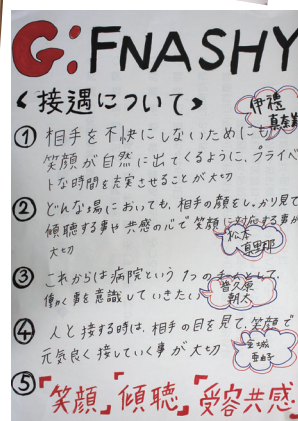 G:FNASHY
〈接遇について〉
伊禮
① 相手を不快にしないためにも
笑顔が自然に出てくるように、プライベ
トな時間を充実させることが大切
② どんな場においても、相手の顔をしっかり見て
傾聴する事や共感の心で笑顔に対応する事が
大切
松本
③ これからは病院という1つのチームとして、
働く事を意識していきたい
普久原
朝太
④ 人と接する時は、相手の目を見て、笑顔で
元気良く接していく事が大切
⑤「笑顔」「傾聴」「受容共感